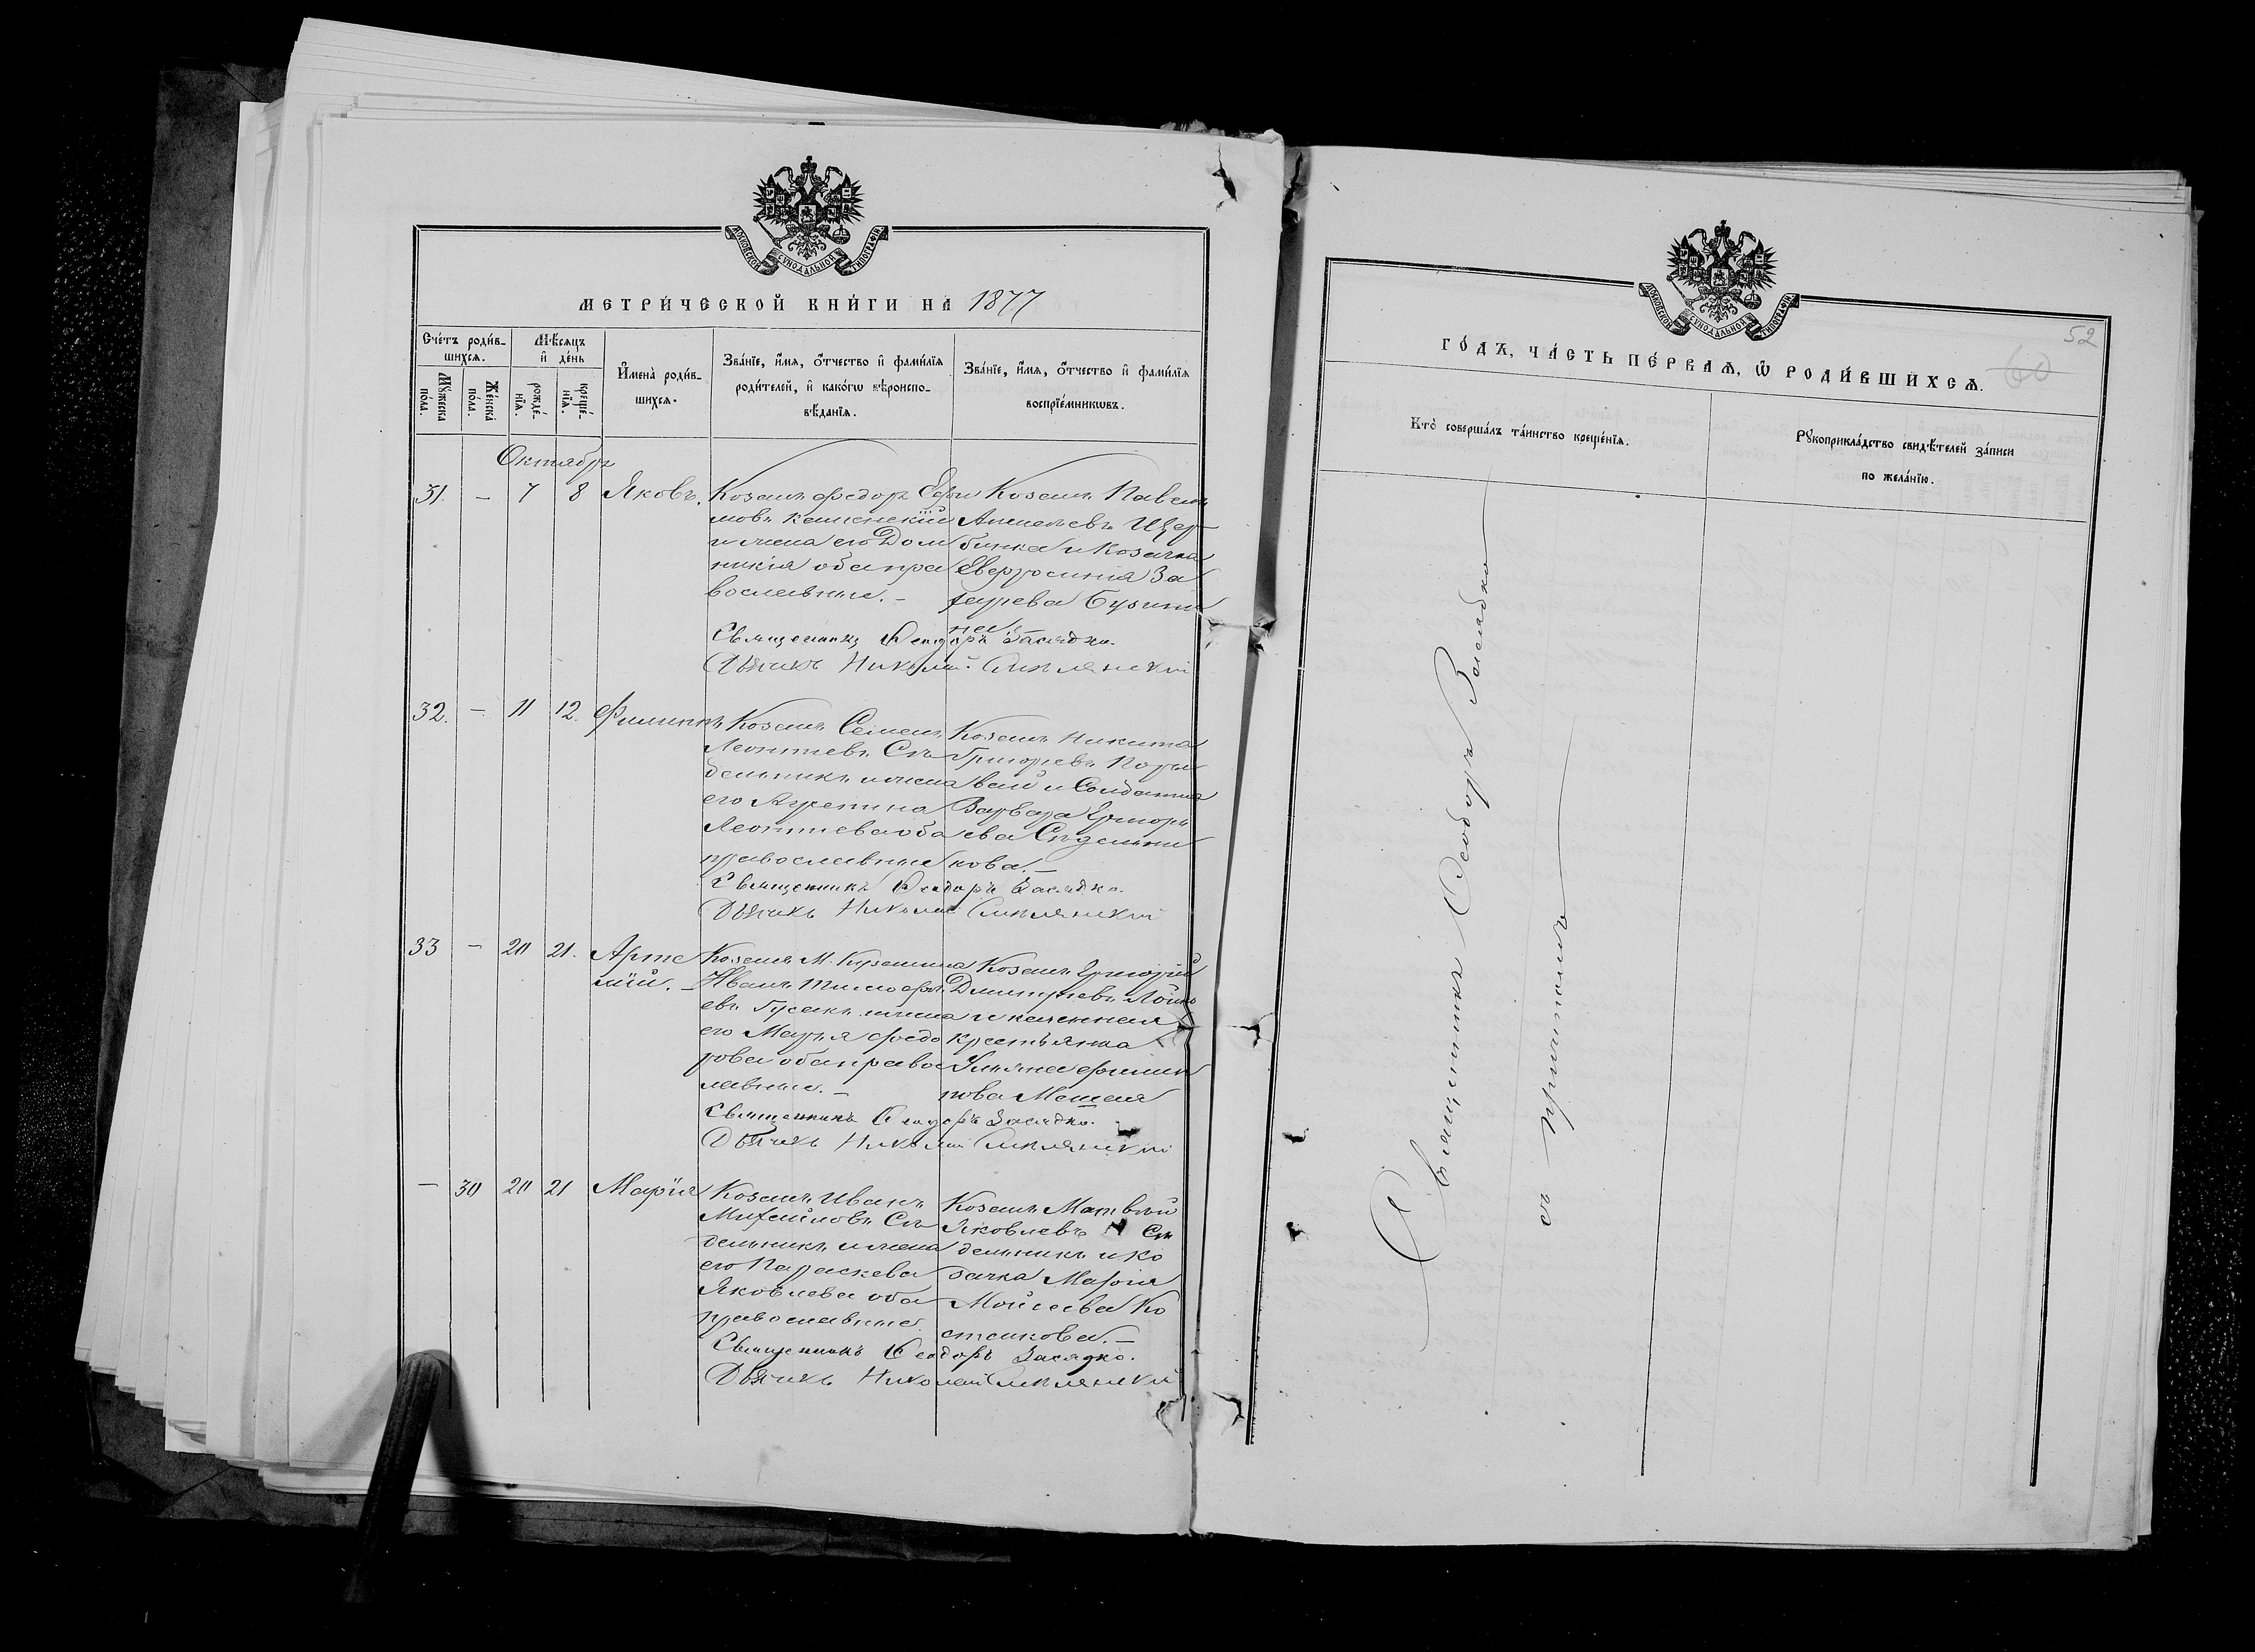 МОСКОВСКОЙ СѴНОДАЛЬНОЙ ТИПОГРАФІИ
МЕТРИ́ЧЕСКОЙ КНИ́ГИ НА 1877
Сче́тъ роди́в-
шихсѧ.
Мꙋ́жеска по́ла.
Же́нска по́ла.
Мѣ́сѧцъ и҆ де́нь
рожде́-
нїѧ.
креще́-
нїѧ.
И҆мена̀ роди́в-
шихсѧ.
Зва́нїе, и҆́мѧ, ѻ҆́тчество и҆ фами́лїѧ
роди́телей, и҆ како́гѡ вѣ́роиспо-
вѣ́данїѧ.
Зва́нїе, и҆́мѧ, ѻ҆́тчество и҆ фами́лїѧ
воспрїе́мникѡвъ.
Октябрь
31. – 7 8 Яковъ.
Козакъ Федоръ Ефи
мовъ Каменскій
и жена его Дом
никія оба пра
вославные. –
Козакъ Павелъ
Щер-
бинка и Козачка
Евфросинія За
Священникъ Феодоръ Засядко.
Дьячекъ Николай Смѣлянскій
32. – 11 12. Филиппъ
Козакъ Семенъ
Леонтіевъ Сѣ
дельникъ и жена
его Агрепина
Леонтіева оба
православные
Козакъ Никита
Григорьевъ
вай и Солдатка
Варвара Григорь
ева Сѣдельни
кова. –
Священникъ Феодоръ Засядко.
Дьячекъ Николай Смѣлянскій
33 – 20 21. Арте
мій. –
Козакъ М.
Иванъ Тимофе
евъ Гусакъ и жена
его Марья Федо
рова оба правос
лавные. –
Козакъ Григорій
Дмитріевъ
и казенная
крестьянка
Ульяна Филип
пова
Священникъ Феодоръ Засядко.
Дьячекъ Николай Смѣлянскій
– 30 20 21 Марія
Козакъ Иванъ
Михайловъ Сѣ
дельникъ и жена
его Параскева
Яковлева оба
православные.
Козакъ Матвѣй
Яковлевъ Сѣ
дельникъ и ко
зачка Марія
Мойсеева Ко
стакова. –
Священникъ Феодоръ Засядко.
Дьячекъ Николай Смѣлянскій
МОСКОВСКОЙ СѴНОДАЛЬНОЙ ТИПОГРАФІИ
52
60
ГО́ДЪ, ЧА́СТЬ ПЕ́РВАѦ, Ѡ҆ РОДИ́ВШИХСѦ.
Кто̀ соверша́лъ та́инство креще́нїѧ.
Рꙋкоприкла́дство свидѣ́телей за́писи
по жела́нїю.
Священникъ Феодоръ Засядко
съ причтомъ